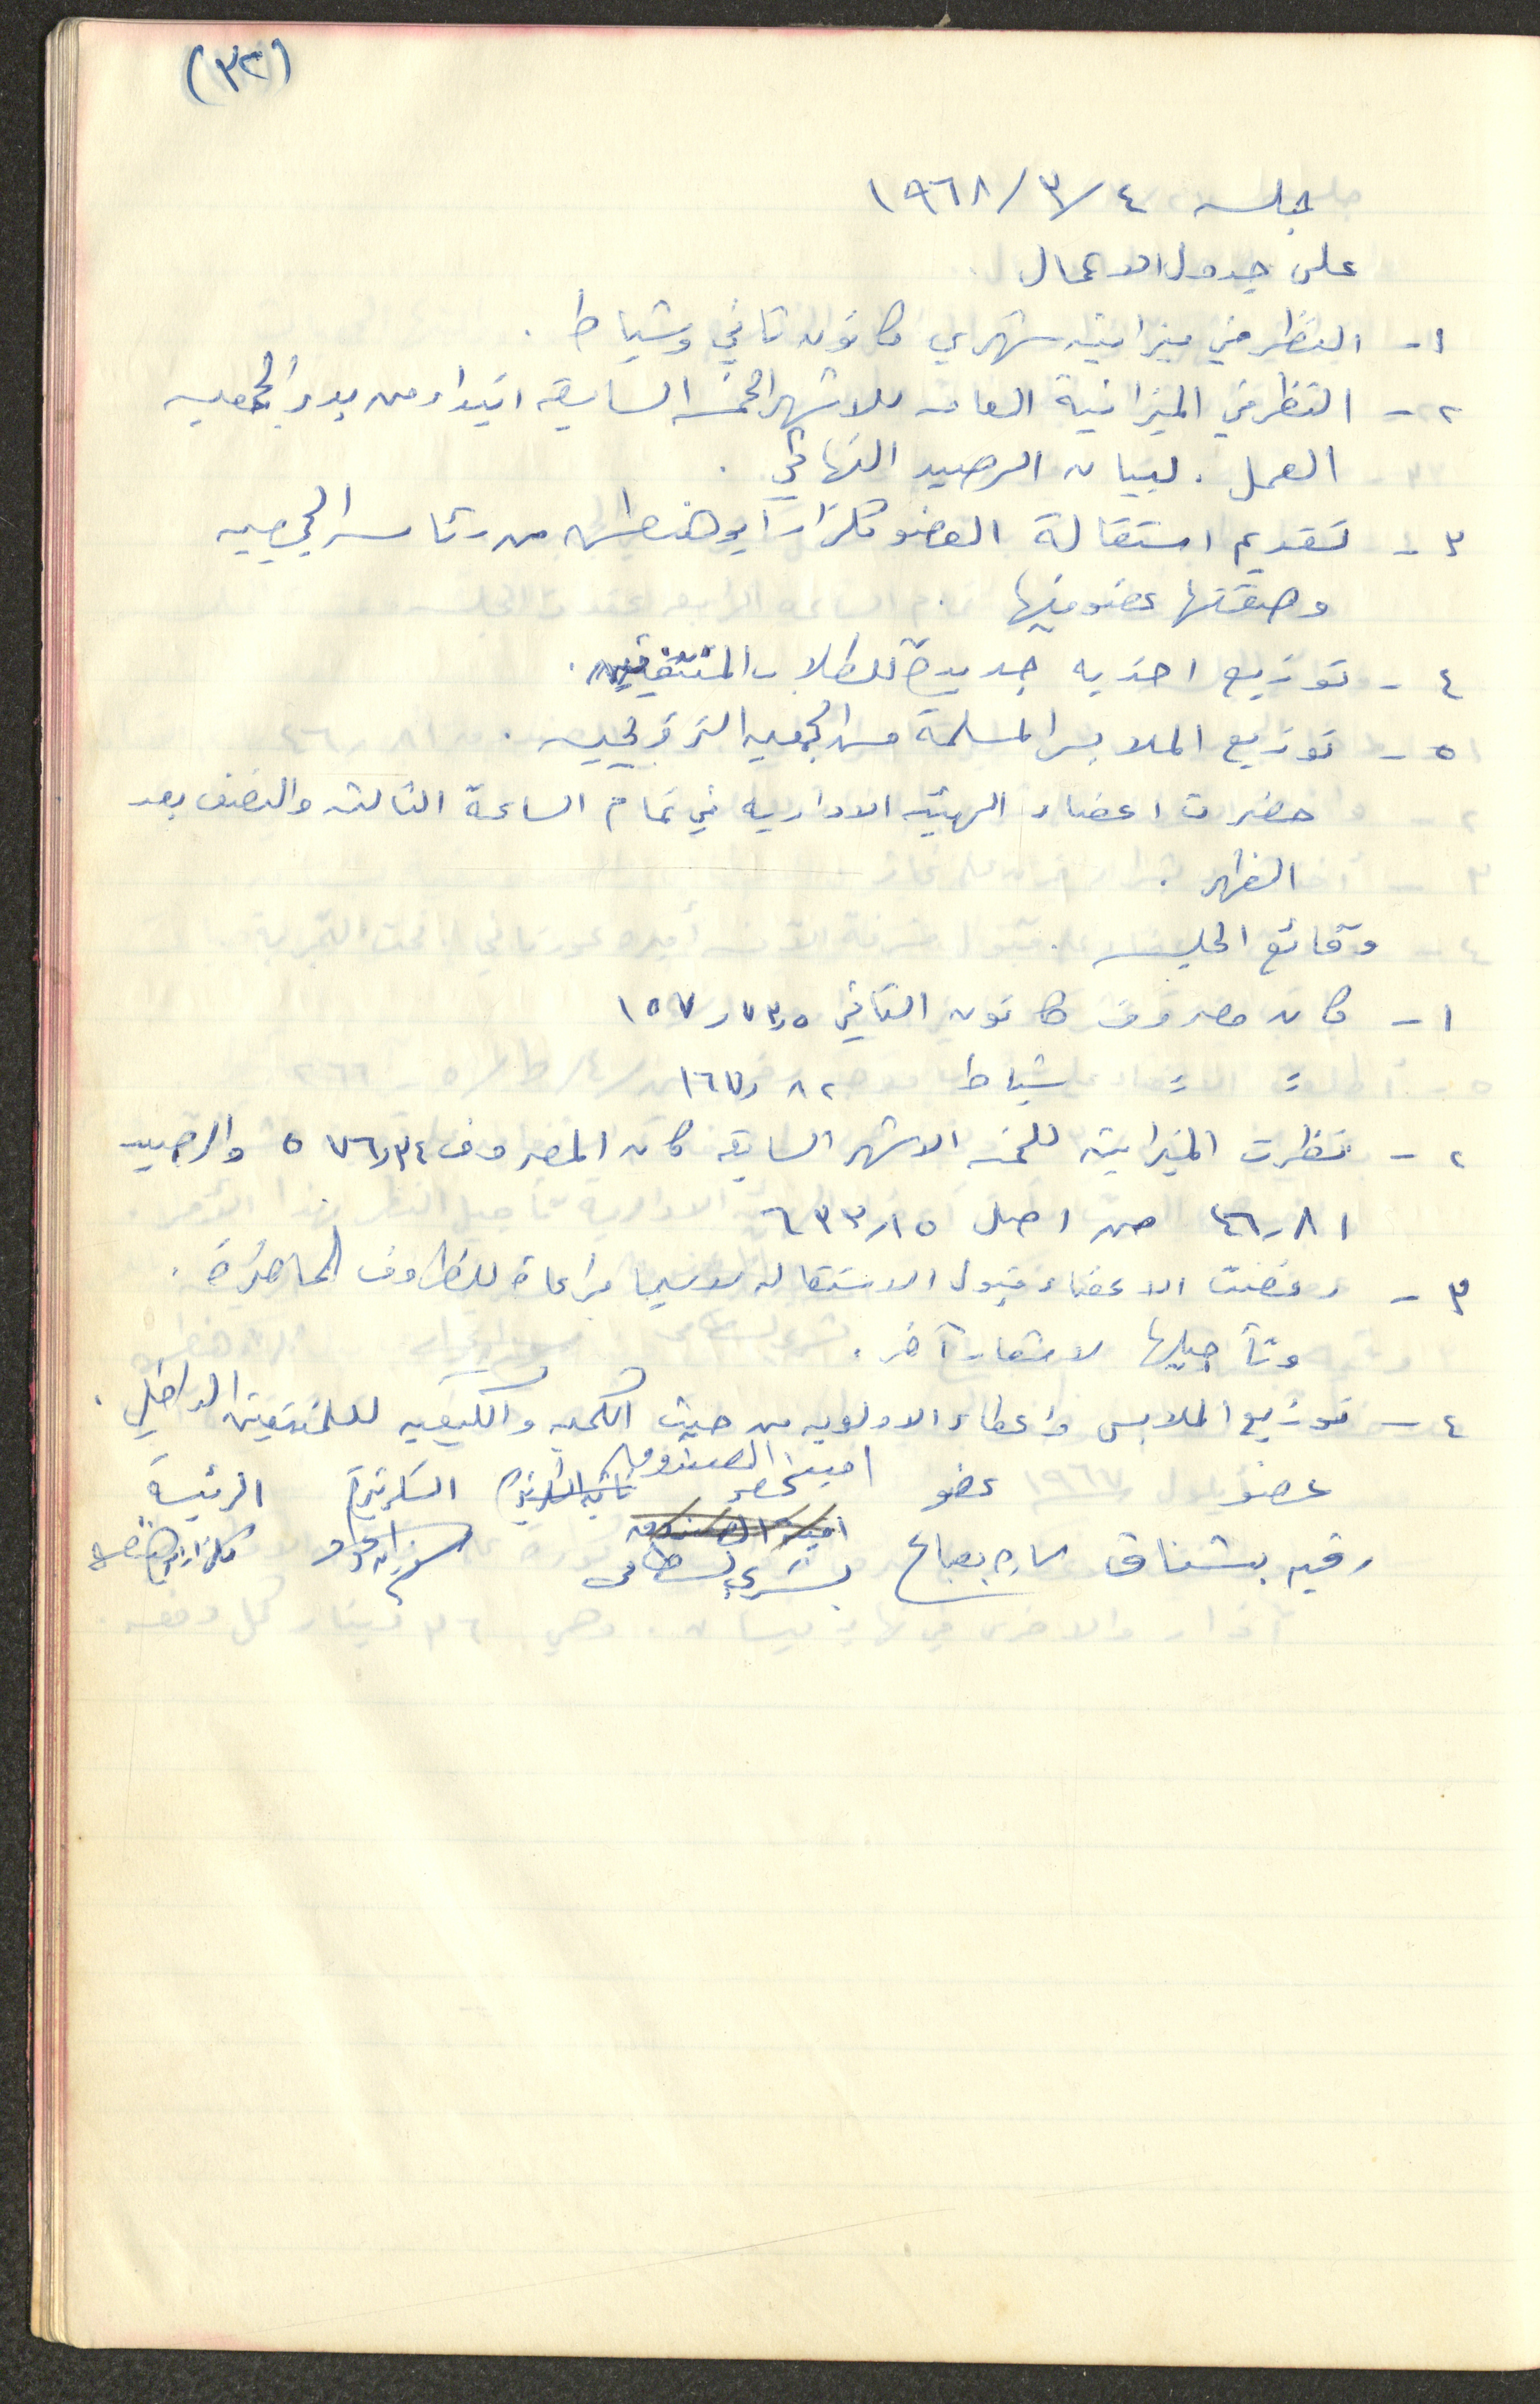 (٣٢)
جلسه ٤/٣/١٩٦٨
على جدول الاعمال
١- النظر في ميزانيه شهري كانون ثاني وشباط .
٢- النظر في الميزانية العامه للاشهر الخمسه السابقه ابتداء من بدء الجمعيه
العمل . لبيان الرصيد النهائي .
٣- تقديم استقالة العضو كلزار ابو هنطش من رئاسه الجمعيه
وصفتها عضو فيها .
٤- توزيع احذيه جديدة للطلاب المنتفعين .
٥- توزيع الملابس المسلمة من الجمعيه النرويجيه .
حضرت اعضاء الهيئه الاداريه في تمام الساعة الثالثه والنصف بعد
الظهر .
وقائع الجلسه .
١- كان مصروف كانون الثاني ١٥٧٫٧٣٥
= = شباط ١٦٧٫٨٢
٢- نظرت الميزانيه للخمسه الاشهر السابقه كان المصروف ٥٧٦٫٣٤ والرصيد
٤٦٫٨١ من اصل ٦٣٣٫١٥
٣- رفضت الاعضاء قبول الاستقاله لاسيما مراعاة للظروف الحاضرة .
وتأجيلها لاشعار آخر .
٤- توزيع الملابس واعطاء الاولويه من حيث الكميه والكيفيه للمنتفعين الداخلي .
عضو عضو امينة الصندوق السكرتيرة الرئيسة
رقيه بشناق بشرى بسطامي كلزار ابو هنطش